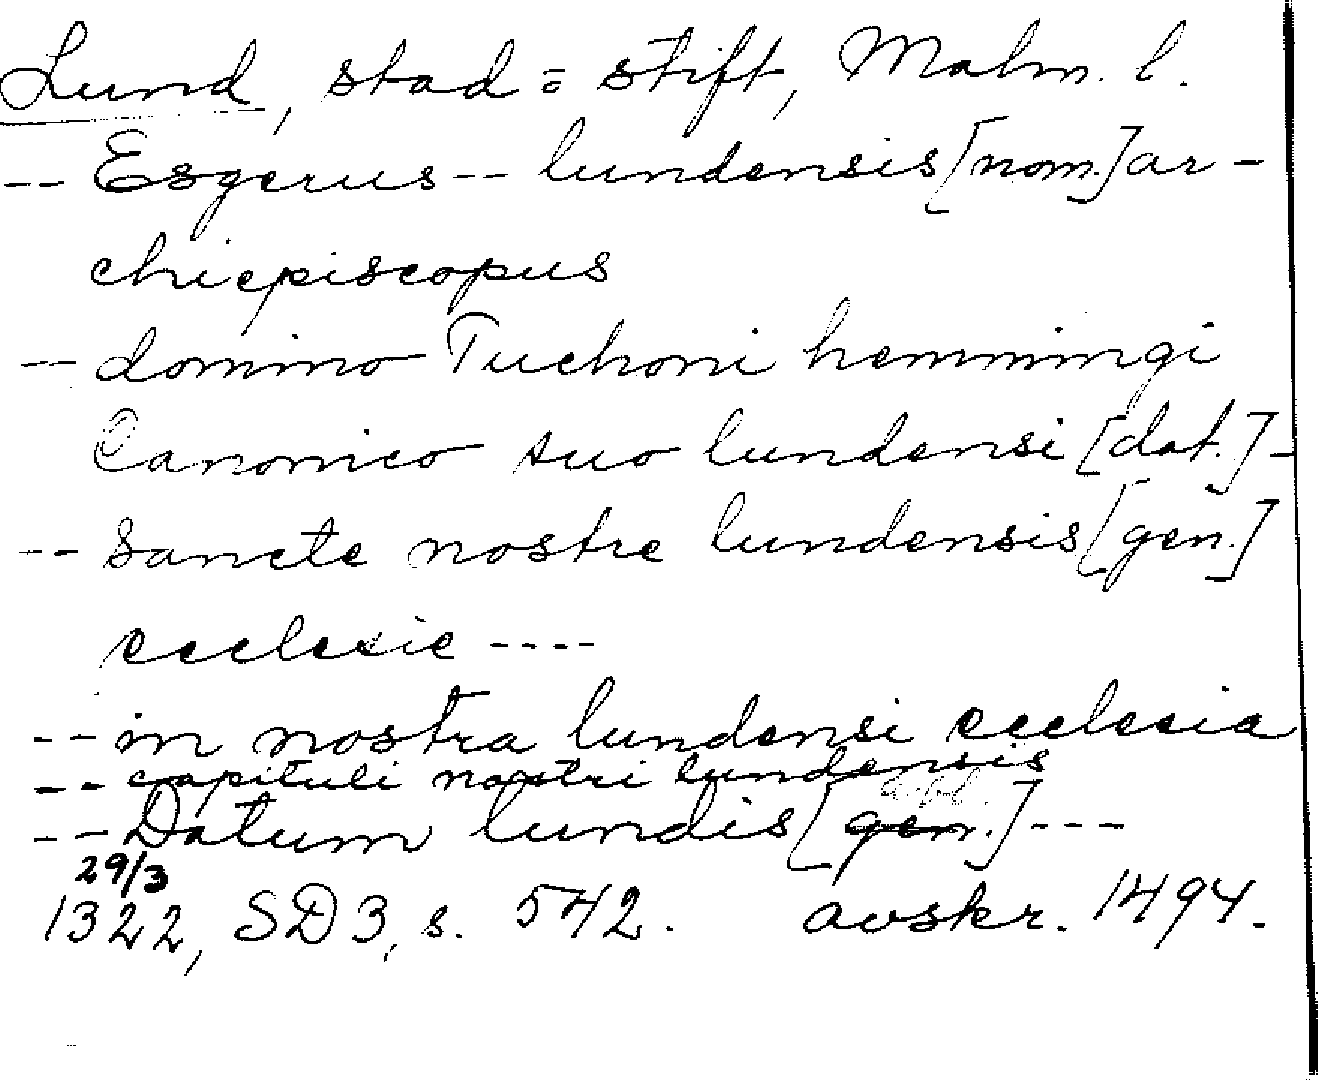 Lund, stad = stift, Malm. l.
-- Esgerus -- lundensis [nom.] ar-
chiepiscopus
-- domino Tuchoni hemmingi
Canonico suo lundensi [dat.] -
-- Sancte nostre lundensis [gen.]
ecclesie ----
-- in nostra lundensi ecclesia
-- capituli nostri lundensis
-- Datum lundis [gen.] ---
29/3
1322, SD 3, s. 542. avskr. 1494.